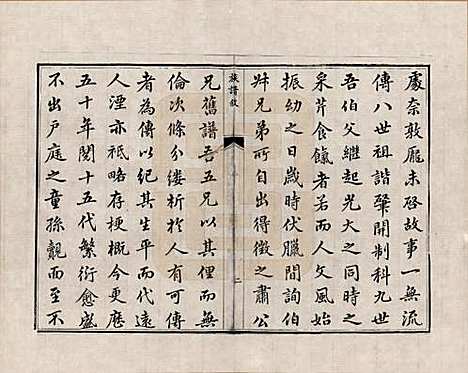 處奈敦龐未啓故事一無流
傳八世祖諧肇開制科九世
吾伯父繼起光大之同時
采芹食餼者若而人文風始
振幼之日歲時伏臘間詢伯
叔兄弟所自出得徵之肅公
族譜敘
二
兄舊譜吾五兄以其俚而無
倫次條分縷析於人有可傳
者為傳以紀其生平而代遠
人湮亦祗略存梗概今更歷
五十年閱十五代繁衍愈盛
不出戶庭之童孫覿而至不